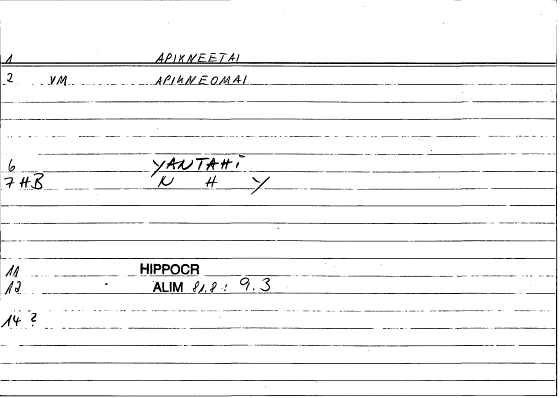 1 APIKNEETAI
2 VM APIKNEOMAI
6 YANTAHI
7 HB N H Y
11 HIPPOCR
12 ALIM 81,8 : 9.3
14 ?